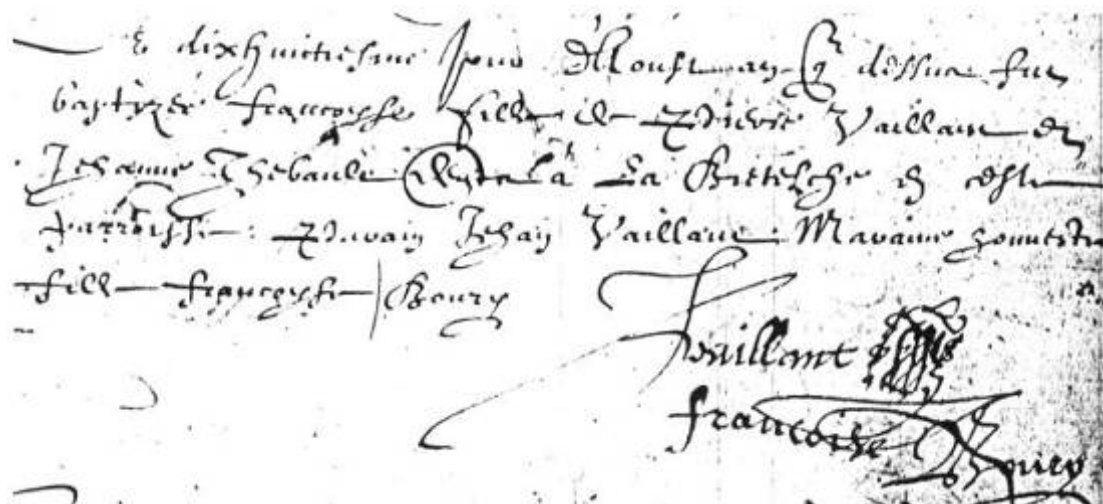 Le dixhuictiesme jour d'Aoust an que dessus fut
baptizée francoysse fille de Pierre Vaillant et
Jehanne Thebaulde de la Bretesche en ceste
parroisse: Parain Jehan Vaillant: Maraine honneste
fille francoysse Boury
Jevaillant
francoise Boury